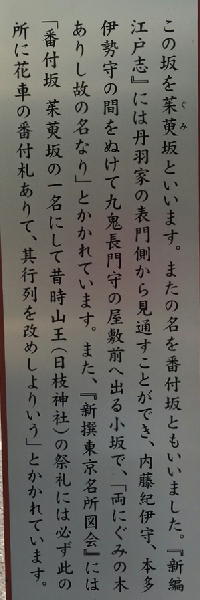 この坂を茱萸坂といいます。またの名を番付坂ともいいました。『新編
ぐみ
江戸志』には丹羽家の表門側から見通すことができ、内藤紀伊守、本多
伊勢守の間をぬけて九鬼長門守の屋敷前へ出る小坂で、「両にぐみの木
ありし故の名なり」とかかれています。また、『新撰東京名所図会』には
「番付坂 茱萸坂の一名にして昔時山王(日枝神社)の祭礼には必ず此の
所に花車の番付札ありて、其行列を改めしよりいう」とかかれています。